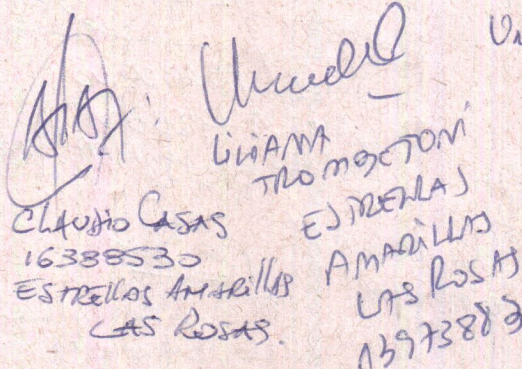 CLAUDIO CASAS
16388530
ESTRELLAS AMARILLAS
LAS ROSAS.
LILIANA
TROMBETONI
ESTRELLAS
AMARILLAS
LAS ROSAS